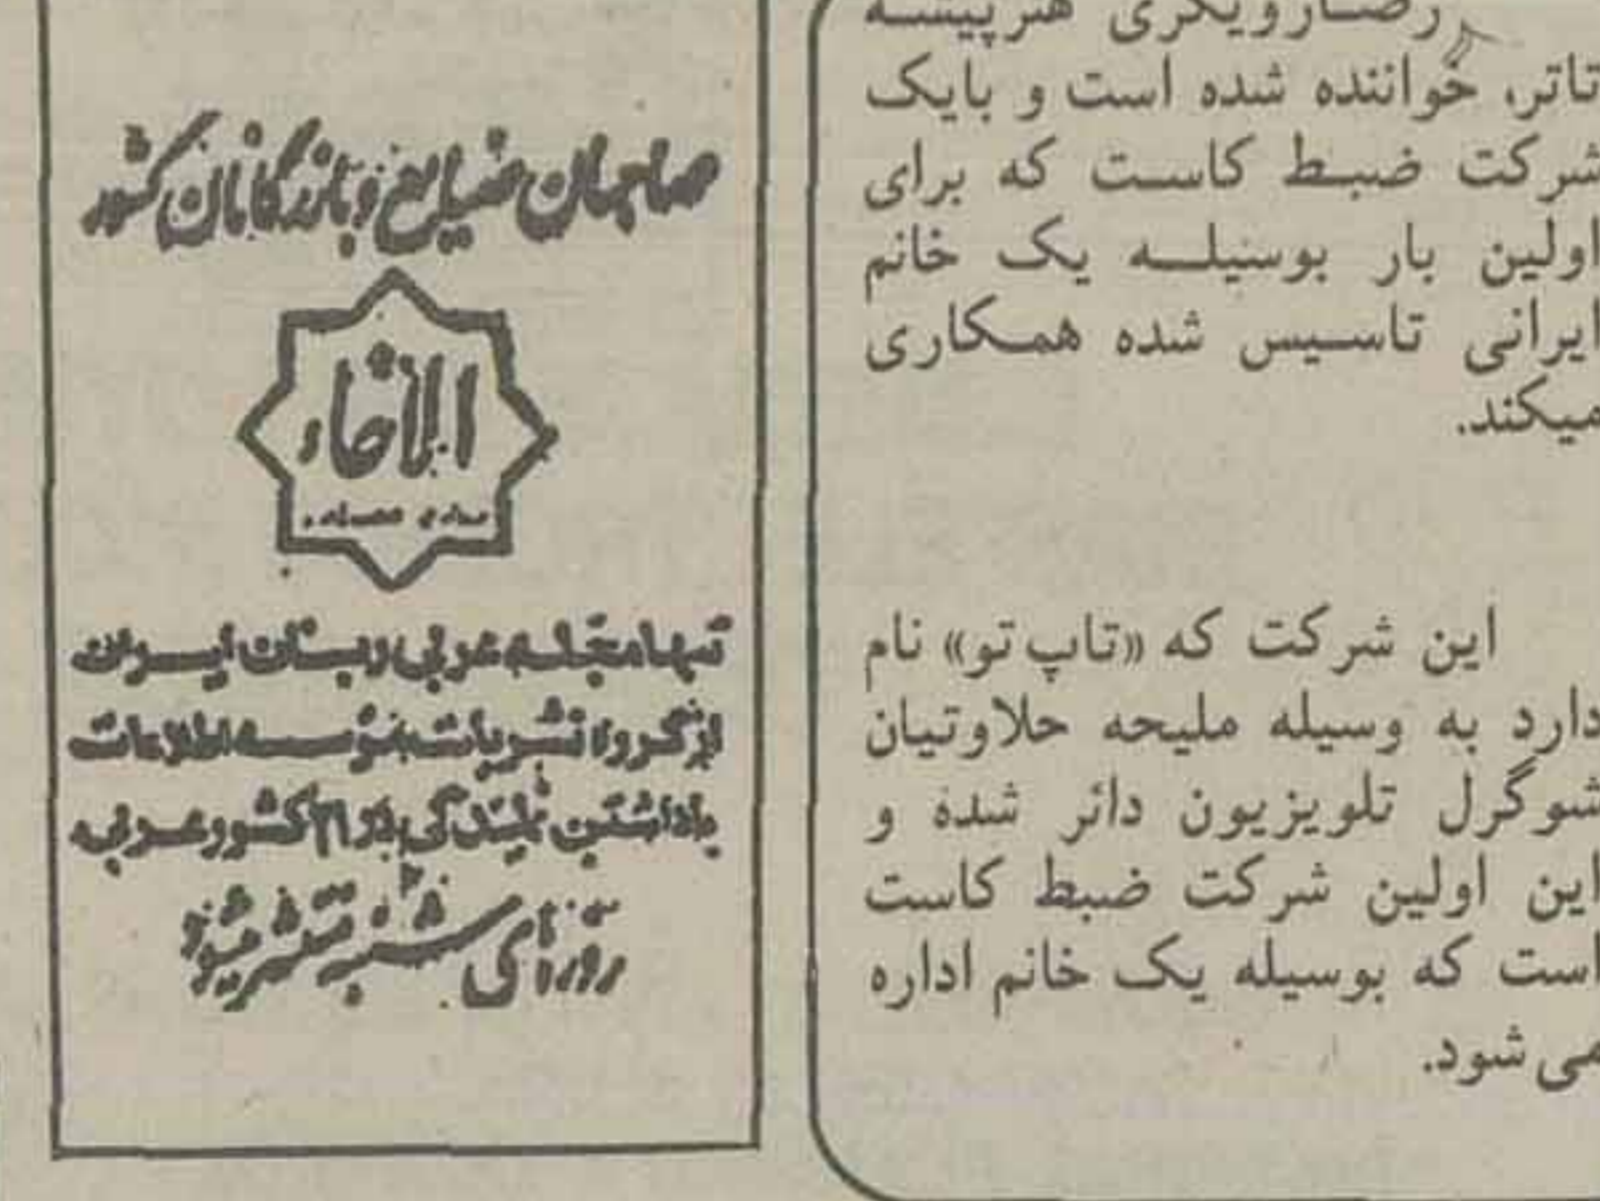 رضارویگری هنرپیشه
تاتر، خواننده شده است و بایک
شرکت ضبط کاست که برای
اولین بار بوسیله یک خانم
ایرانی تاسیس شده همکاری
میکند.
این شرکت که «تاپ تو» نام
دارد به وسیله ملیحه حلاوتیان
شوگرل تلویزیون دائر شده و
این اولین شرکت ضبط کاست
است که بوسیله یک خانم اداره
می شود.
صاحبان صنایع و بازرگانان کشور
الاخاء
تنها مجله عربی زبان ایران
از گروه نشریات مؤسسه اطلاعات
باداشتن نمایندگی در ۲۱ کشور عربی
روزهای شنبه منتشر میشود